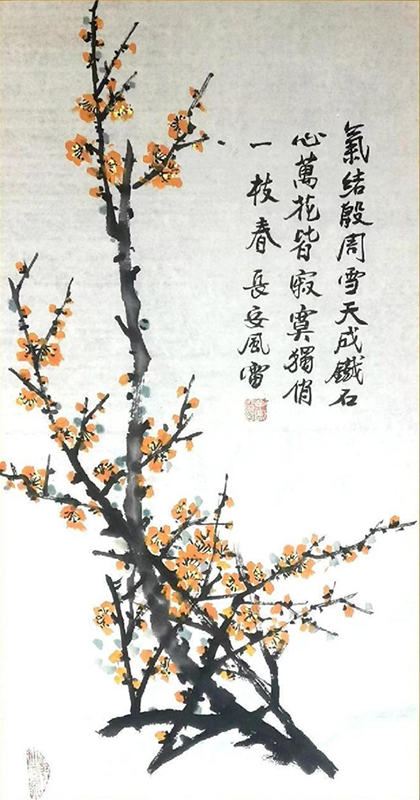 氣結殷周雪天成鐵石
心萬花皆寂寞獨俏
一枝春 長安風雷